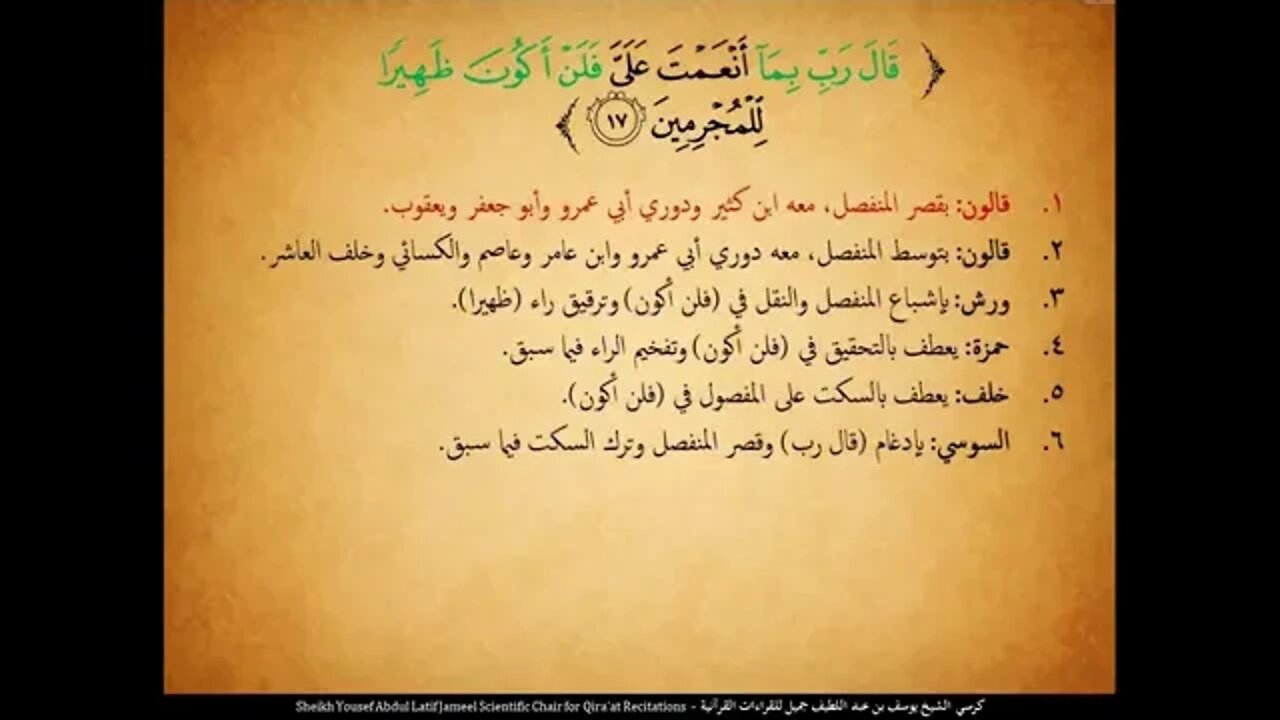 ﴿ قَالَ رَبِّ بِمَآ أَنۡعَمۡتَ عَلَيَّ فَلَنۡ أَكُونَ ظَهِيرٗا
لِّلۡمُجۡرِمِينَ ١٧ ﴾
١. قالون: بقصر المنفصل، معه ابن كثير ودوري أبي عمرو وأبو جعفر ويعقوب.
٢. قالون: بتوسط المنفصل، معه دوري أبي عمرو وابن عامر وعاصم والكسائي وخلف العاشر.
٣. ورش: بإشباع المنفصل والنقل في (فلن أكون) وترقيق راء (ظهيرا).
٤. حمزة: يعطف بالتحقيق في (فلن أكون) وتفخيم الراء فيما سبق.
٥. خلف: يعطف بالسكت على المفصول في (فلن أكون).
٦. السوسي: بإدغام (قال رب) وقصر المنفصل وترك السكت فيما سبق.
كرسي الشيخ يوسف بن عبد اللطيف جميل للقراءات القرآنية - Sheikh Yousef Abdul Latif Jameel Scientific Chair for Qira'at Recitations